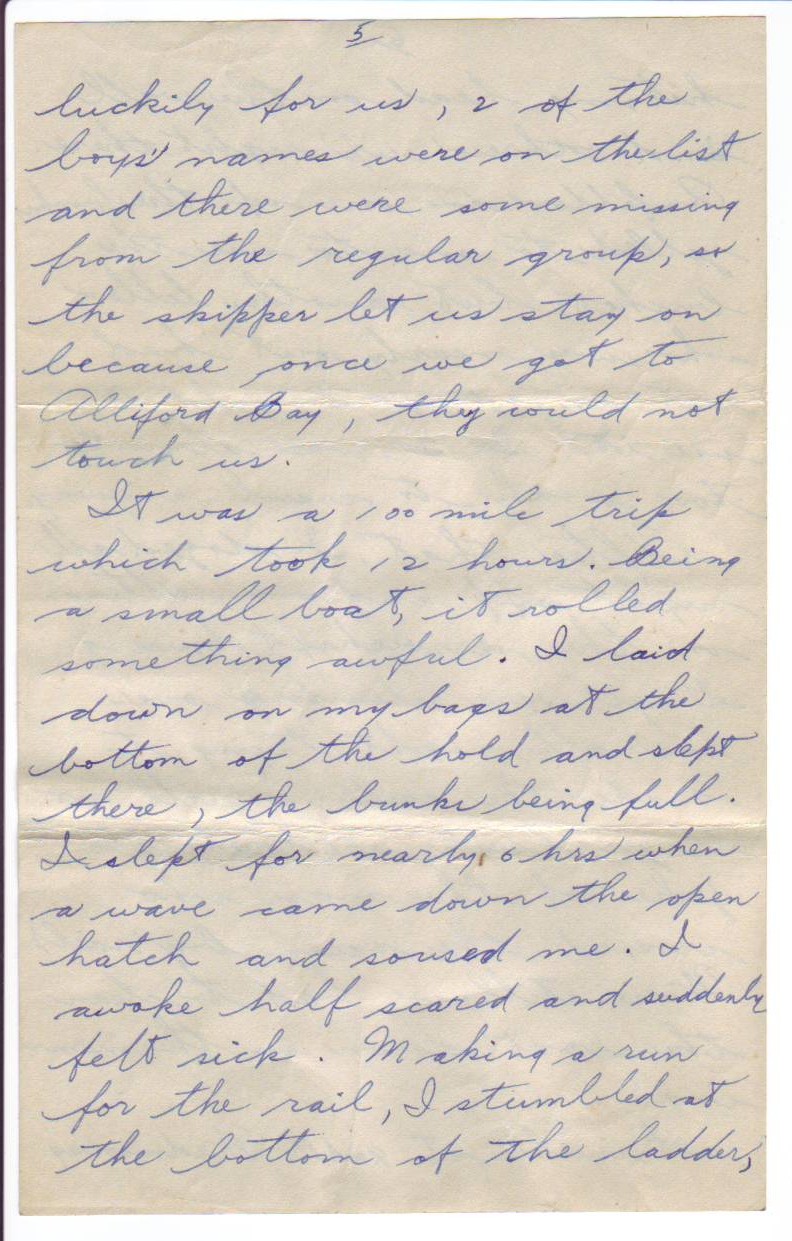 5
luckily for us, 2 of the
boys' names were on the list
and there were some missing
from the regular group, so
the skipper let us stay on
because once we got to
Alliford Bay, they would not
touch us.
It was a 100 mile trip
which took 12 hours. Being
a small boat, it rolled
something awful. I laid
down on my bags at the
bottom of the hold and slept
there, the bunks being full.
I slept for nearly 6 hrs when
a wave came down the open
hatch and soused me. I
awoke half scared and suddenly
felt sick. Making a run
for the rail, I stumbled at
the bottom of the ladder,